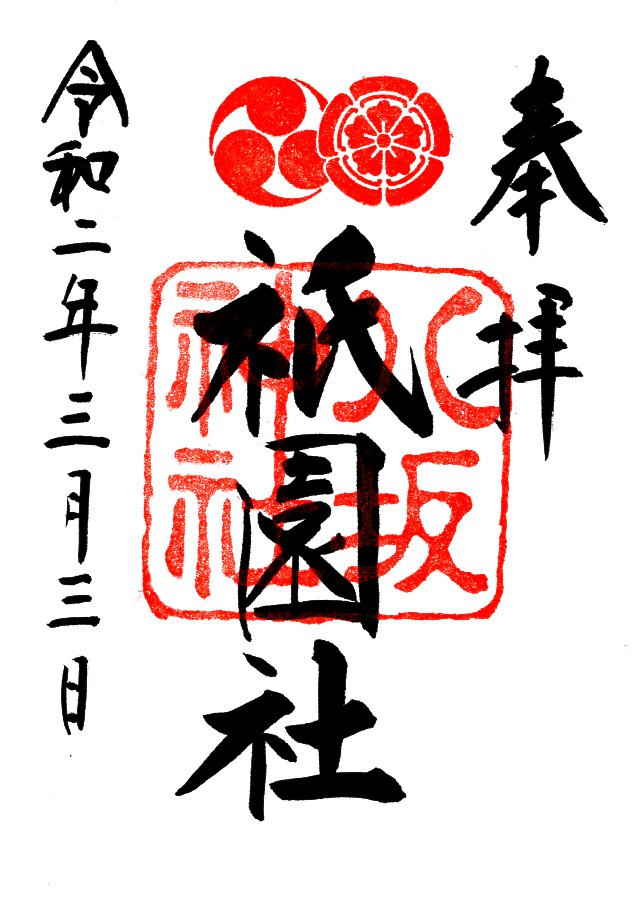 奉拝
祇園社
八坂神社
令和二年三月三日